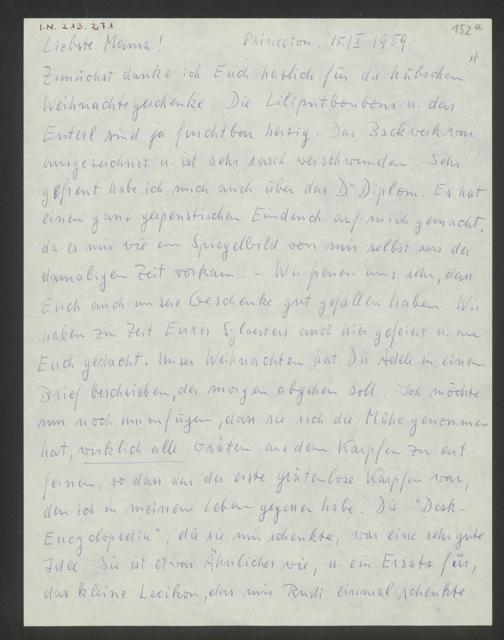 I.N. 213.271
152a
Liebste Mama! Princeton, 15/I 1959.
Zunächst danke ich Euch herzlich für die hübschen
Weihnachtsgeschenke. Die Liliputbonbons u. das
Enterl sind ja furchtbar herzig. Das Backwerk war
ausgezeichnet u. ist sehr rasch verschwunden. Sehr
gefreut habe ich mich auch über das Dr Diplom. Es hat
einen ganz gespenstischen Eindruck auf mich gemacht,
da es mir wie ein Spiegelbild von mir selbst aus der
damaligen Zeit vorkam. – Wir freuen uns sehr, dass
Euch auch unsere Geschenke gut gefallen haben. Wir
haben zur Zeit Eures Sylvesters auch hier gefeiert u. an
Euch gedacht. Unser Weihnachten hat Dir Adele in einem
Brief beschrieben, der morgen abgehen soll. Ich möchte
nur noch hinzufügen, dass sie sich die Mühe genommen
hat, wirklich alle Gräten aus dem Karpfen zu ent
fernen, so dass das der erste grätenlose Karpfen war,
den ich in meinem Leben gegessen habe. Die "Desk-
Encyclopedia", die sie mir schenkte, war eine sehr gute
Idee. Sie ist etwas Ähnliches wie, u. ein Ersatz für,
das kleine Lexikon, das mir Rudi einmal schenkte